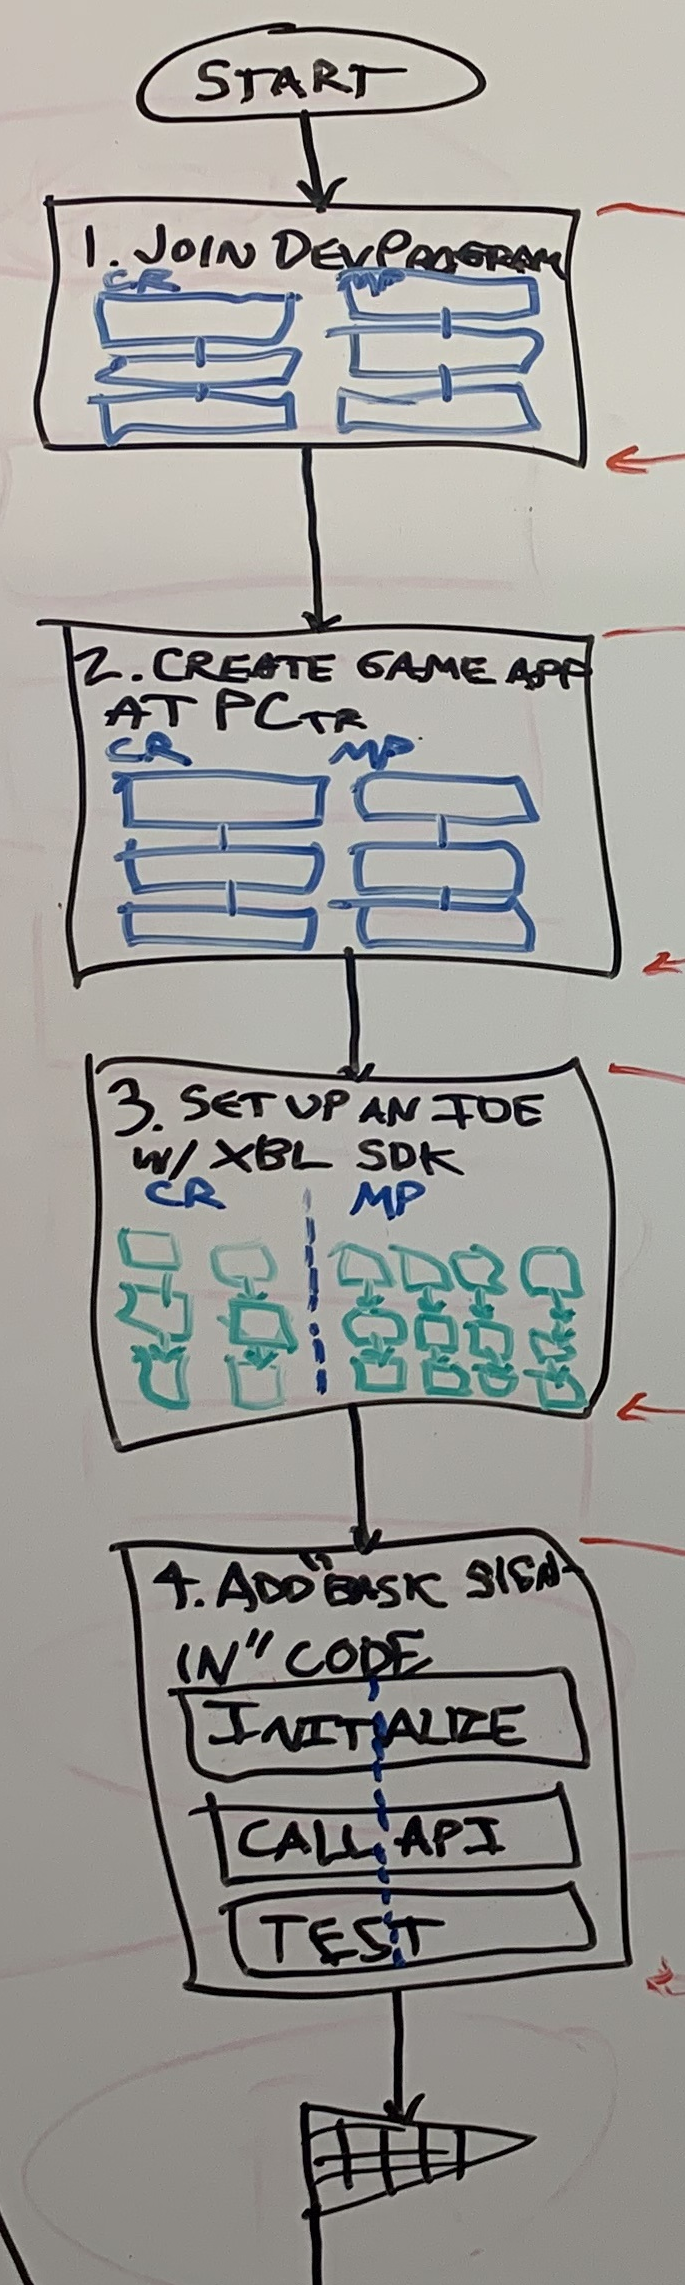 START
1. JOIN DEV PROGRAM
CR MP
2. CREATE GAME APP
AT PCTR
CR MP
3. SET UP AN IDE
W/ XBL SDK
CR MP
4. ADD "BASIC SIGN-
IN" CODE
INITIALIZE
CALL API
TEST